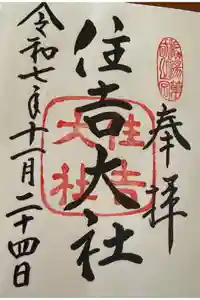 奉拝
住吉大社
住吉大社
令和七年十一月二十四日